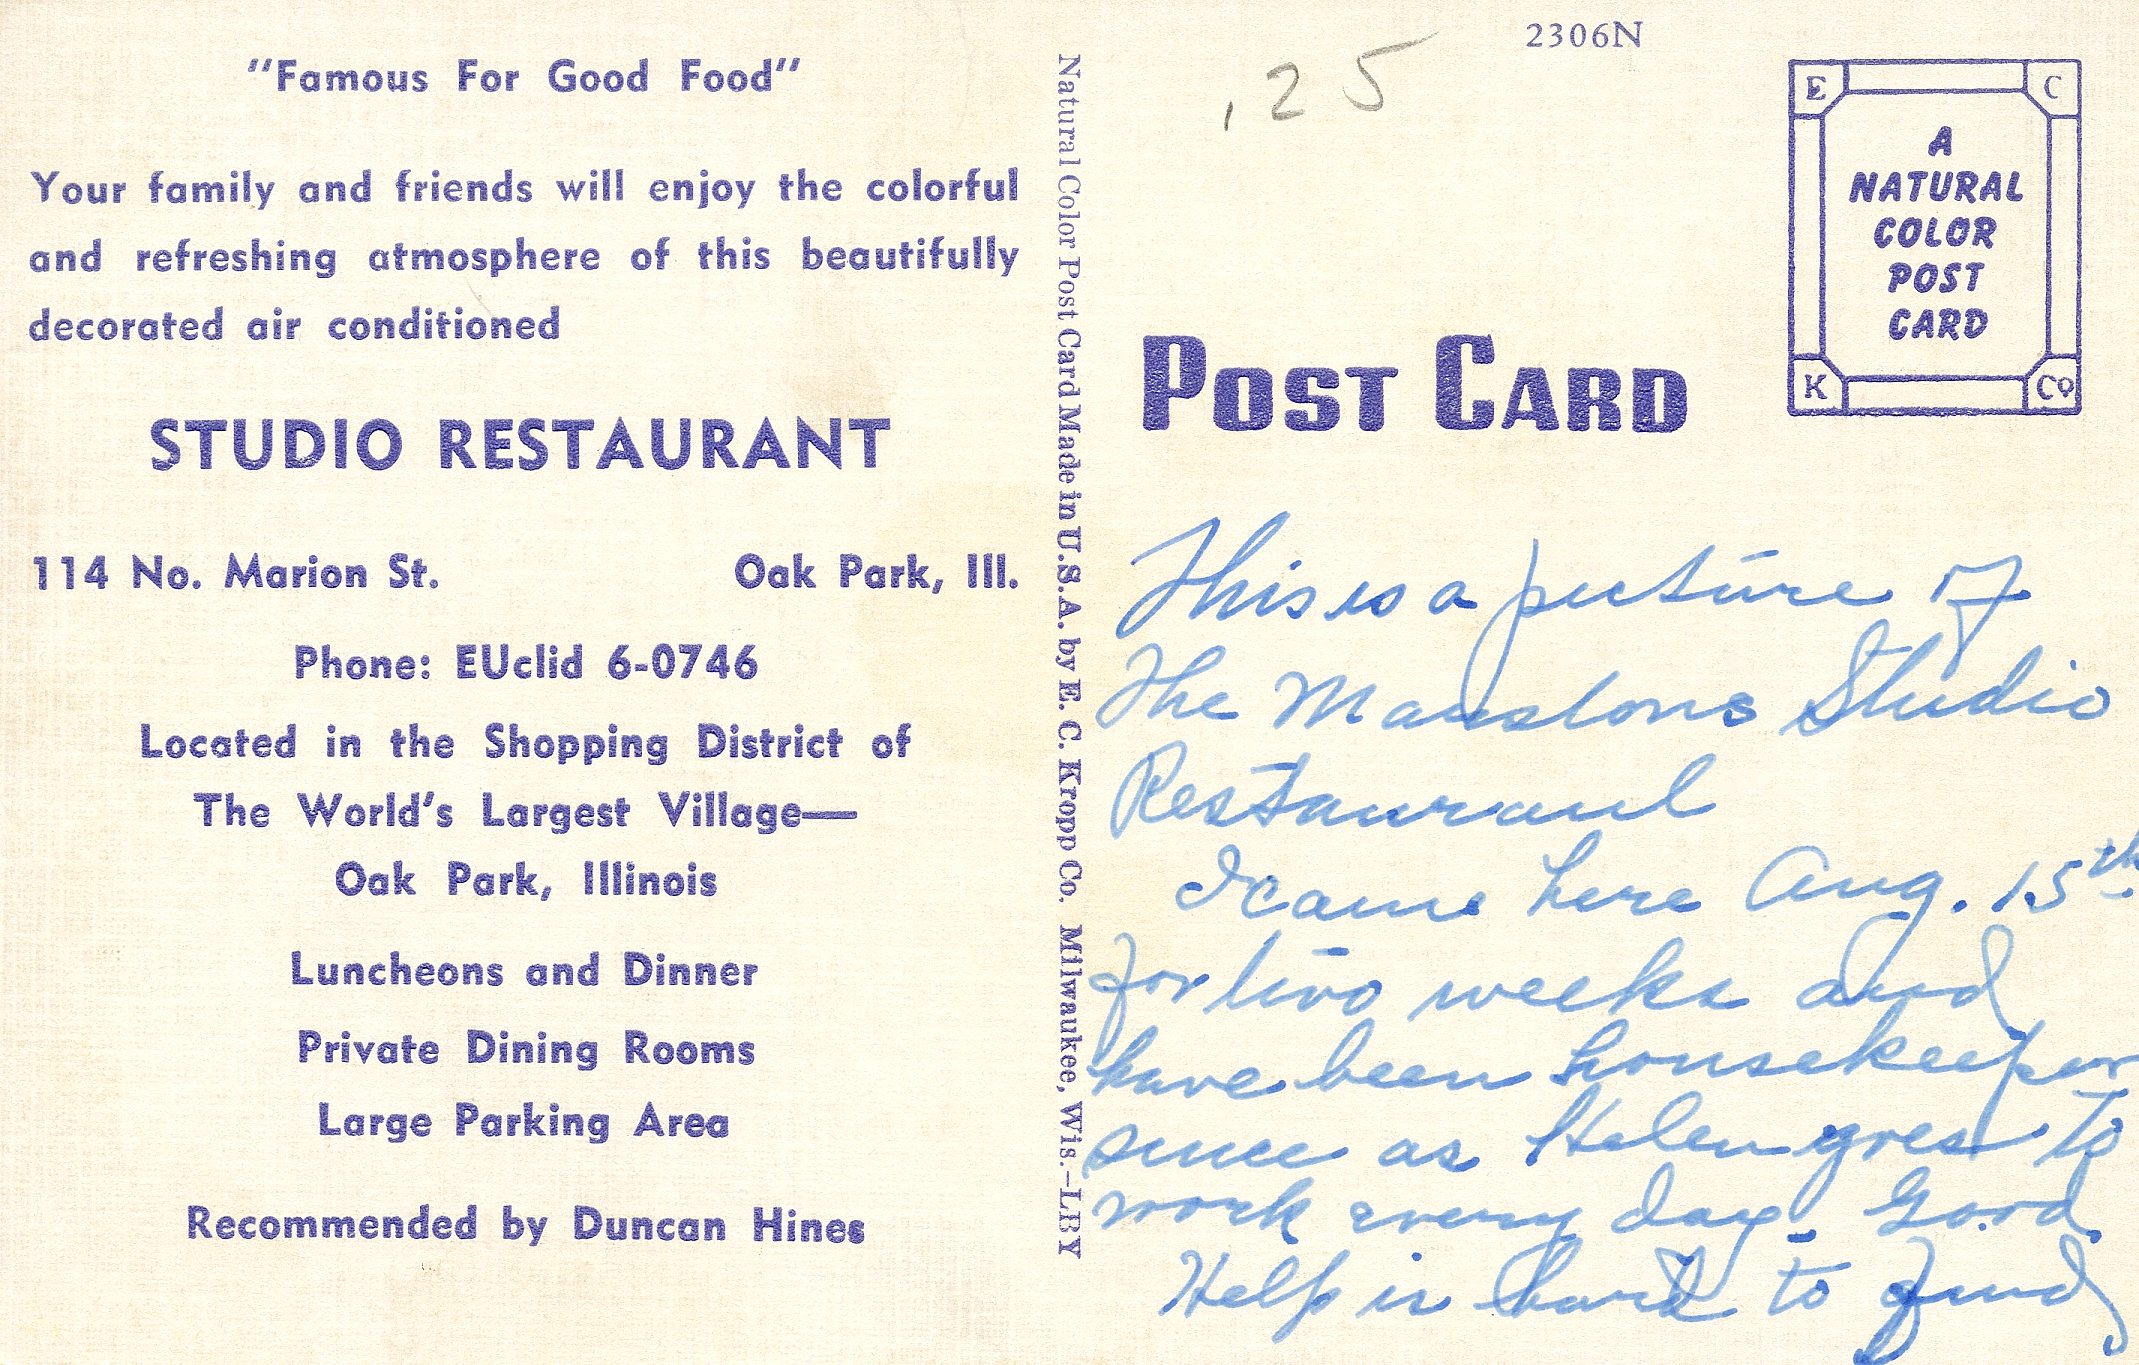 "Famous For Good Food"
Your family and friends will enjoy the colorful
and refreshing atmosphere of this beautifully
decorated air conditioned
STUDIO RESTAURANT
114 No. Marion St. Oak Park, Ill.
Phone: EUclid 6-0746
Located in the Shopping District of
The World's Largest Village—
Oak Park, Illinois
Luncheons and Dinner
Private Dining Rooms
Large Parking Area
Recommended by Duncan Hines
Natural Color Post Card Made in U.S.A. by E. C. Kropp Co. Milwaukee, Wis.-LBY
2306N
.25
E C
A
NATURAL
COLOR
POST
CARD
K Co
POST CARD
This is a picture of
The Studio
Restaurant
I came here Aug. 15th
for two weeks and
have been housekeeper
since as Helen goes to
work every day. Good
Help is hard to find